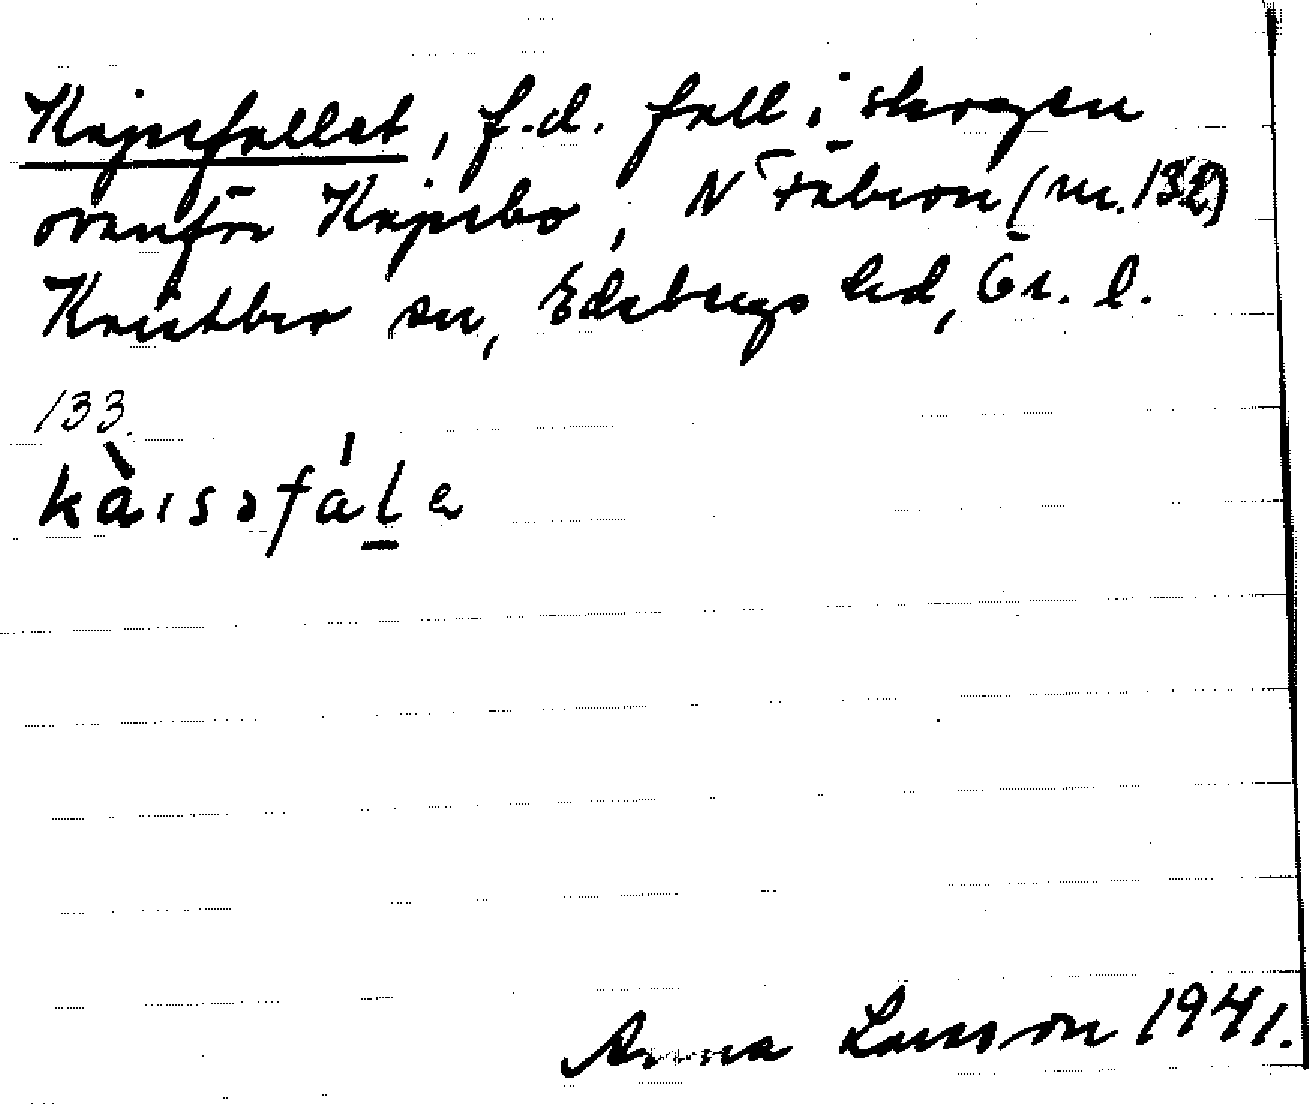 Kajsefallet, f.d. fall i skogen
ovanför Kajsebo, N Fåbron (nr. 132)
Knistabro sn, Edsbergs hd, Ör. l.
133.
kàısəfála
Anna Larsson 1941.